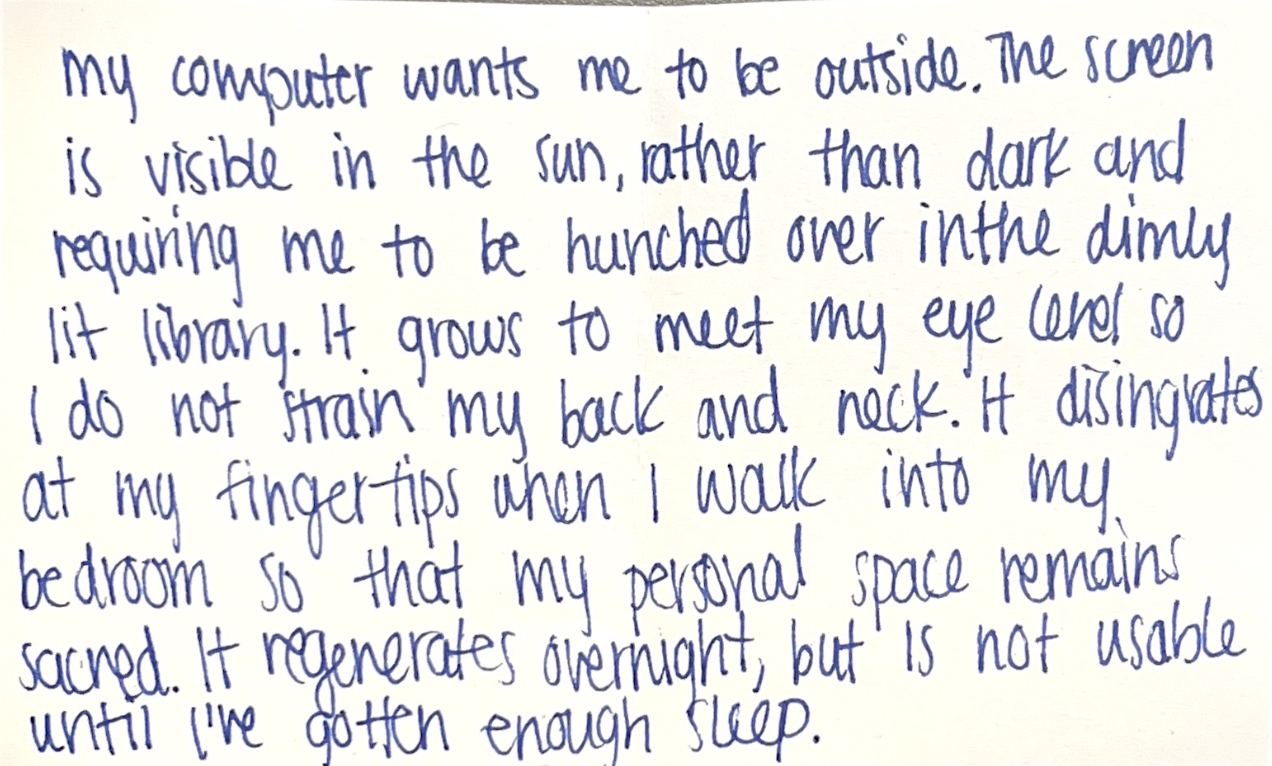 my computer wants me to be outside. The screen
is visible in the sun, rather than dark and
requiring me to be hunched over in the dimly
lit library. It grows to meet my eye level so
I do not strain my back and neck. It disingrates
at my fingertips when I walk into my
bedroom so that my personal space remains
sacred. It regenerates overnight, but is not usable
until I've gotten enough sleep.